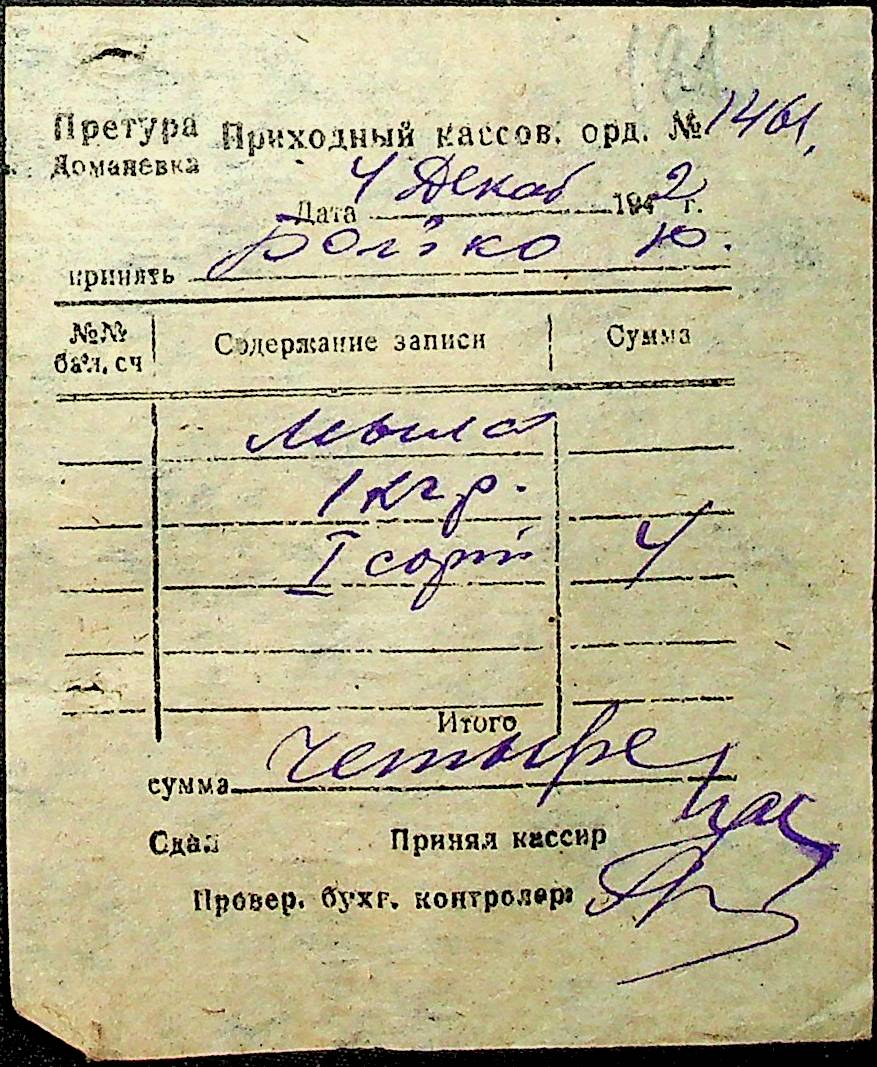 Претура Приходный кассов. орд. № 1461.
Доманевка
Дата 4 Декаб 1942 г.
принять Бойко Ю.
№№ бал. сч Содержание записи Сумма
мыла
1 кгр.
I сорт 4
Итого
сумма четыре
Сдал Принял кассир
Провер. бухг. контролер: